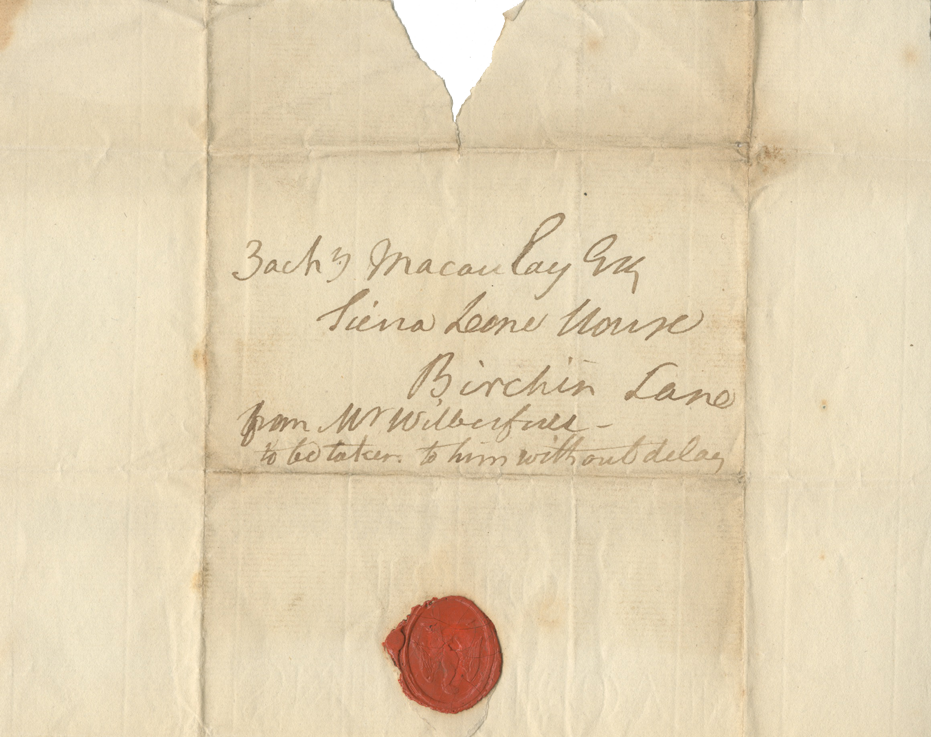 Zachy Macaulay Esq
Sierra Leone House
Birchin Lane
from Mr Wilberforce -
to be taken to him without delay